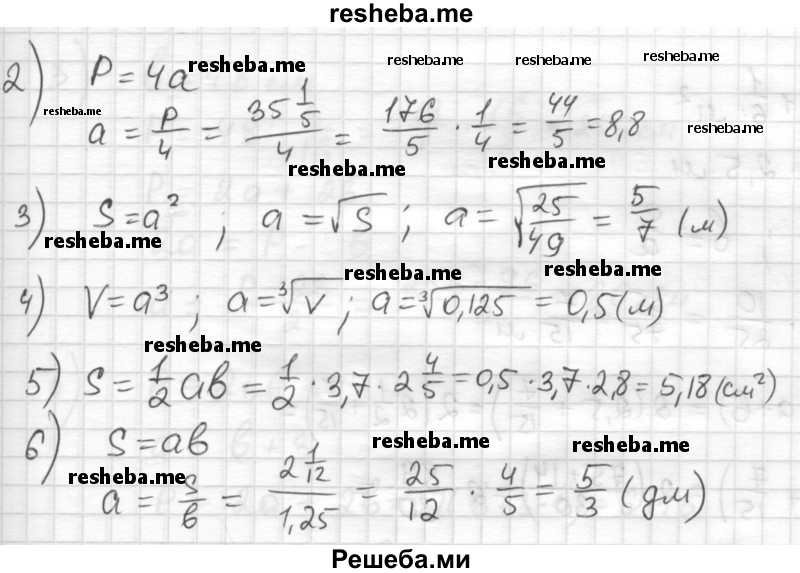 resheba.me
2) P = 4a resheba.me resheba.me resheba.me resheba.me
resheba.me a = P/4 = 35 1/5 / 4 = 176/5 · 1/4 = 44/5 = 8,8 resheba.me
resheba.me resheba.me
3) S = a² ; a = √S ; a = √25/49 = 5/7 (м)
resheba.me resheba.me resheba.me
4) V = a³ ; a = ³√V ; a = ³√0,125 = 0,5 (м)
resheba.me
5) S = 1/2 ab = 1/2 · 3,7 · 2 4/5 = 0,5 · 3,7 · 2,8 = 5,18 (см²)
6) S = ab resheba.me resheba.me
resheba.me
a = S/b = 2 1/12 / 1,25 = 25/12 · 4/5 = 5/3 (дм)
Решеба.ми